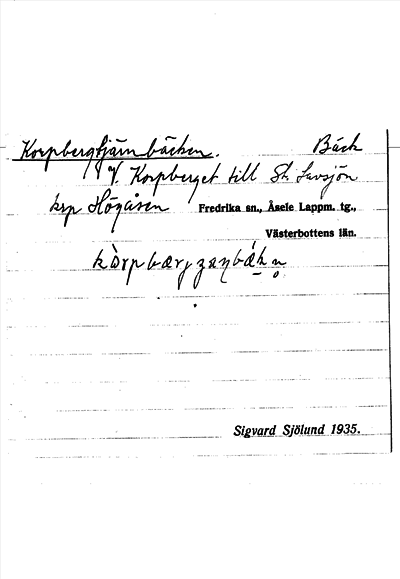 Korpbergtjärnbäcken. Bäck
V. Korpberget till St. Lavsjön
krp Högåsen Fredrika sn., Åsele Lappm. tg.,
Västerbottens län.
Sigvard Sjölund 1935.